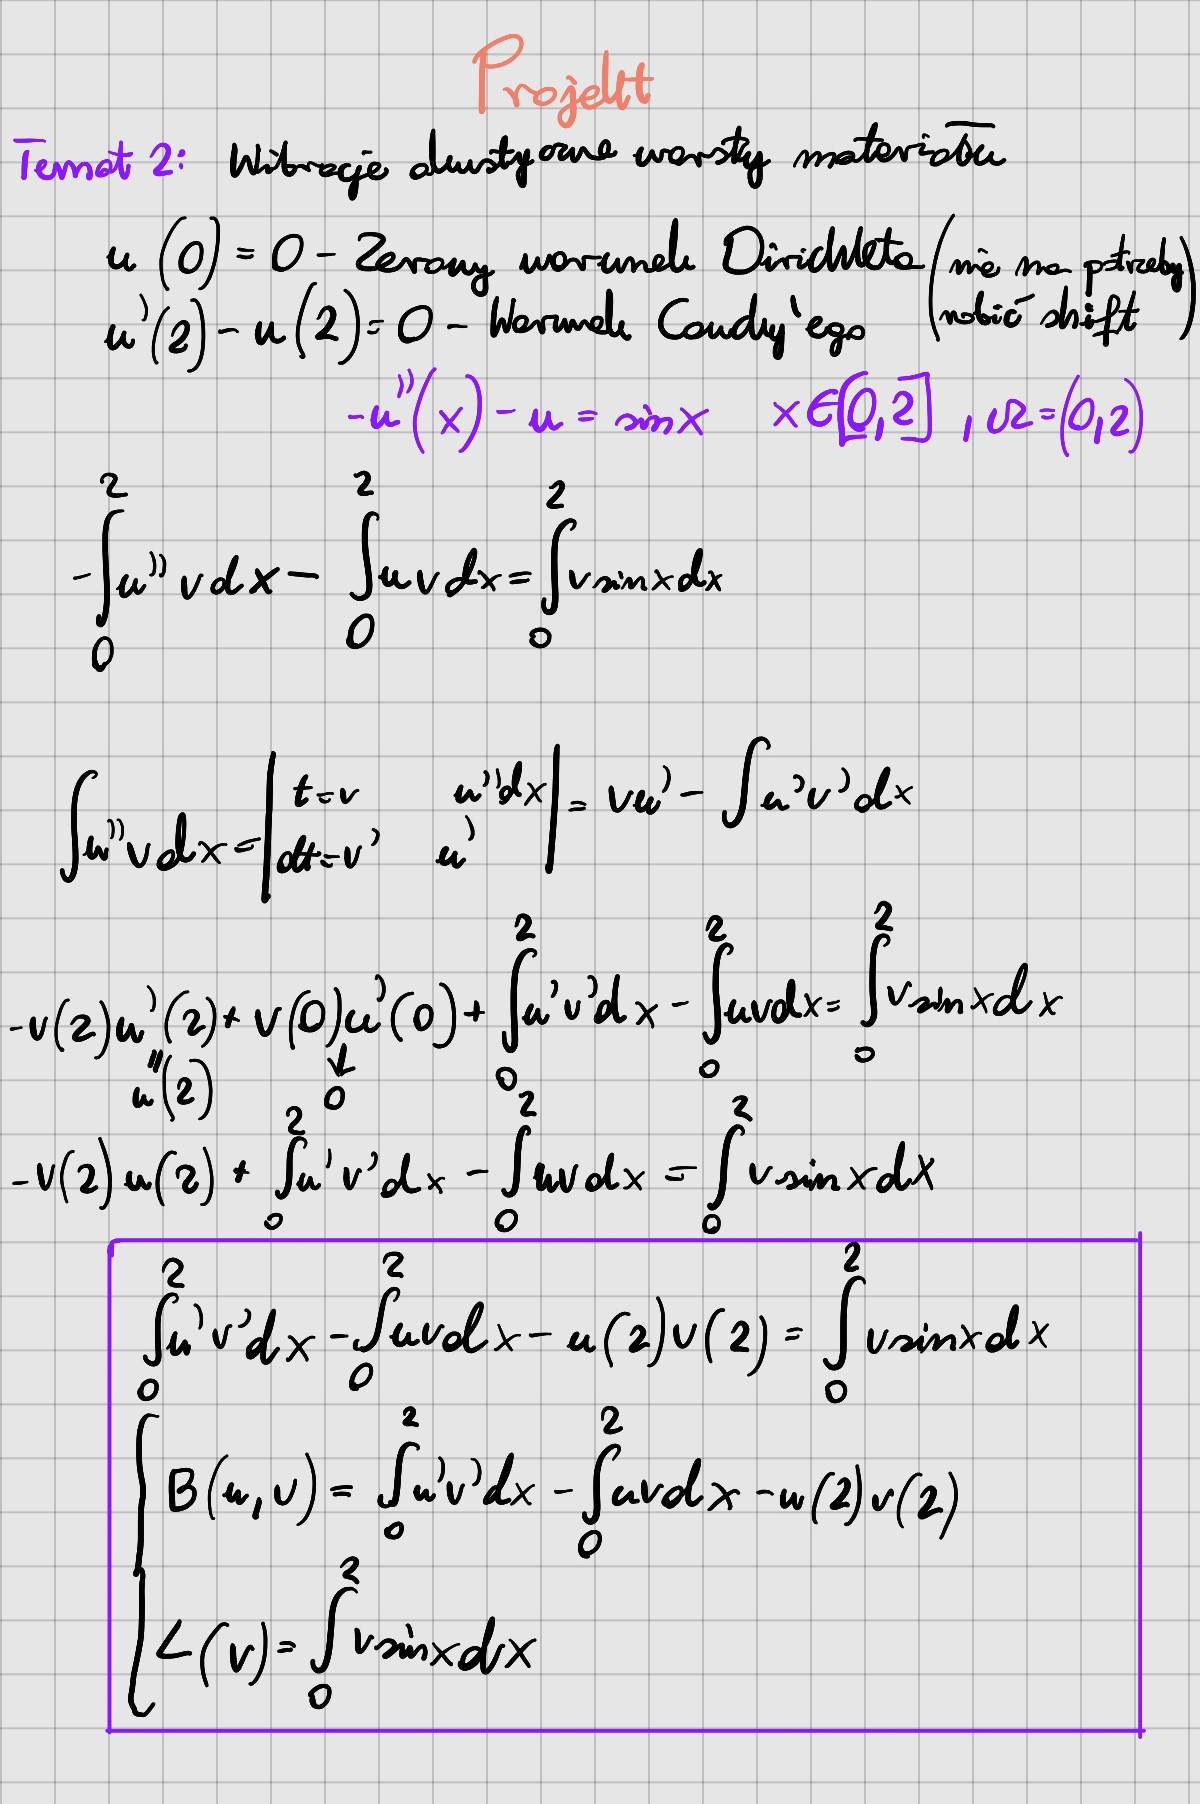 Projekt
Temat 2: Wibracje akustyczne warsty materiału
u(0) = 0 - Zerowy warunek Dirichleta (nie ma potrzeby
u'(2) - u(2) = 0 - Warunek Cauchy'ego robić shift)
-u''(x) - u = sin x x∈[0,2] , Ω=(0,2)
-∫₀² u'' v dx - ∫₀² u v dx = ∫₀² v sin x dx
∫u'' v dx = | t=v u''dx | = vu' - ∫u'v'dx
| dt=v' u' |
-v(2)u'(2) + v(0)u'(0) + ∫₀² u'v'dx - ∫₀² uvdx = ∫₀² v sin x dx
" ↓
u(2) 0
-v(2)u(2) + ∫₀² u'v'dx - ∫₀² uvdx = ∫₀² v sin x dx
∫₀² u'v'dx - ∫₀² uvdx - u(2)v(2) = ∫₀² v sin x dx
{ B(u,v) = ∫₀² u'v'dx - ∫₀² uvdx - u(2)v(2)
L(v) = ∫₀² v sin x dx